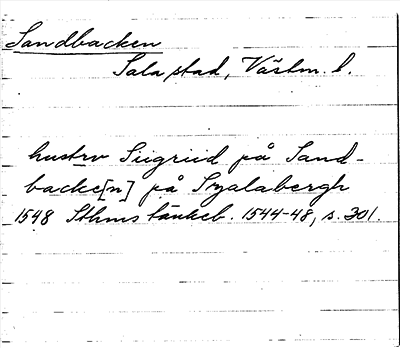 Sandbacken
Sala stad, Västm. l.
hustrv Siigriid på Sand-
backe[n] på Szalabergh
1548 Sthms tänkeb. 1544-48, s. 301.